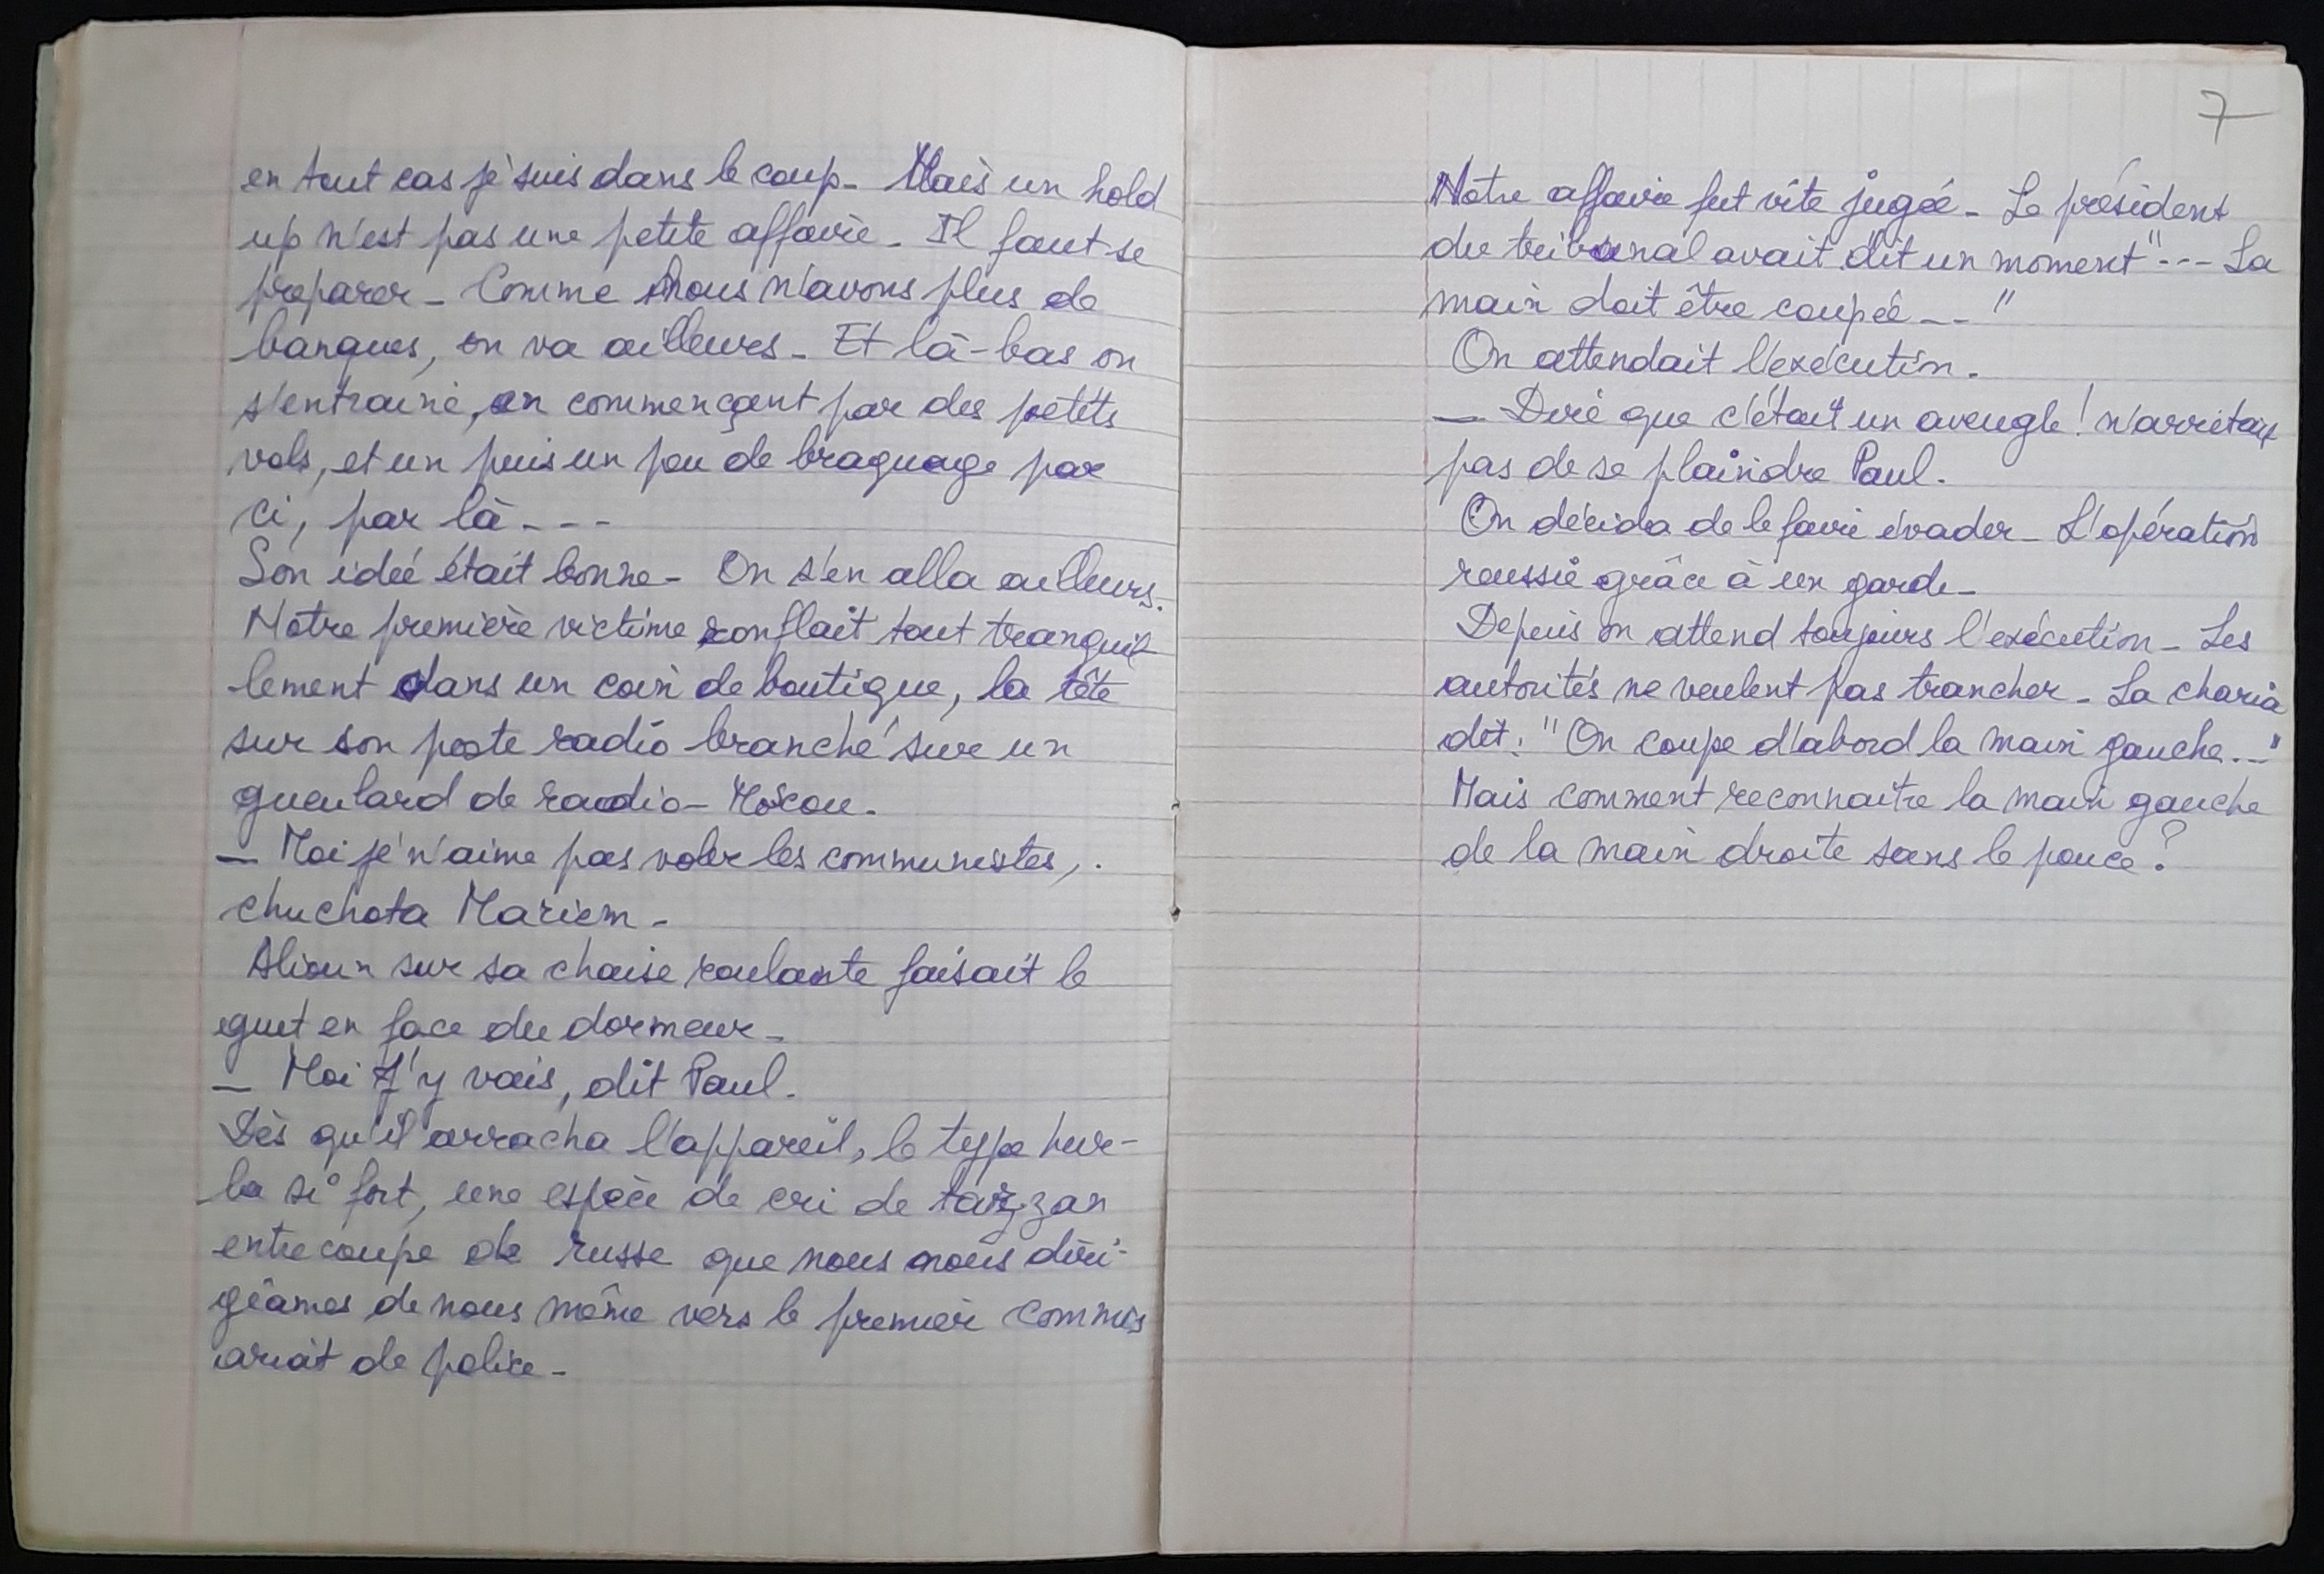 en tout cas je suis dans le coup - Mais un hold
up n'est pas une petite affaire - Il faut se
preparer - Comme nous n'avons plus de
banques, on va ailleurs - Et là-bas on
s'entraine, en commençant par des petits
vols, et un puis un peu de braquage par
ci, par là - - -
Son idée était bonne - On s'en alla ailleurs.
Notre première victime ronflait tout tranquil
lement dans un coin de boutique, la tête
sur son poste radio branché sur un
gueulard de radio-Moscou.
— Moi je n'aime pas voler les communistes,
chuchota Mariem -
Alioun sur sa chaise roulante faisait le
guet en face du dormeur -
— Moi j'y vais, dit Paul.
Dès qu'il arracha l'appareil, le type hur-
la si fort, une espèce de cri de tarzzan
entrecoupe de russe que nous nous diri-
geâmes de nous même vers le premier commis
ariat de police -
7
Notre affaire fut vite jugée - Le président
du tribunal avait dit un moment "--- La
main doit être coupée -- "
On attendait l'exécution.
— Dire que c'était un aveugle ! n'arrêtait
pas de se plaindre Paul.
On décida de le faire évader - L'opération
reussie grâce à un garde -
Depuis on attend toujours l'exécution - Les
autorités ne veulent pas trancher - La charia
dit : "On coupe d'abord la main gauche..."
Mais comment reconnaitre la main gauche
de la main droite sans le pouce ?